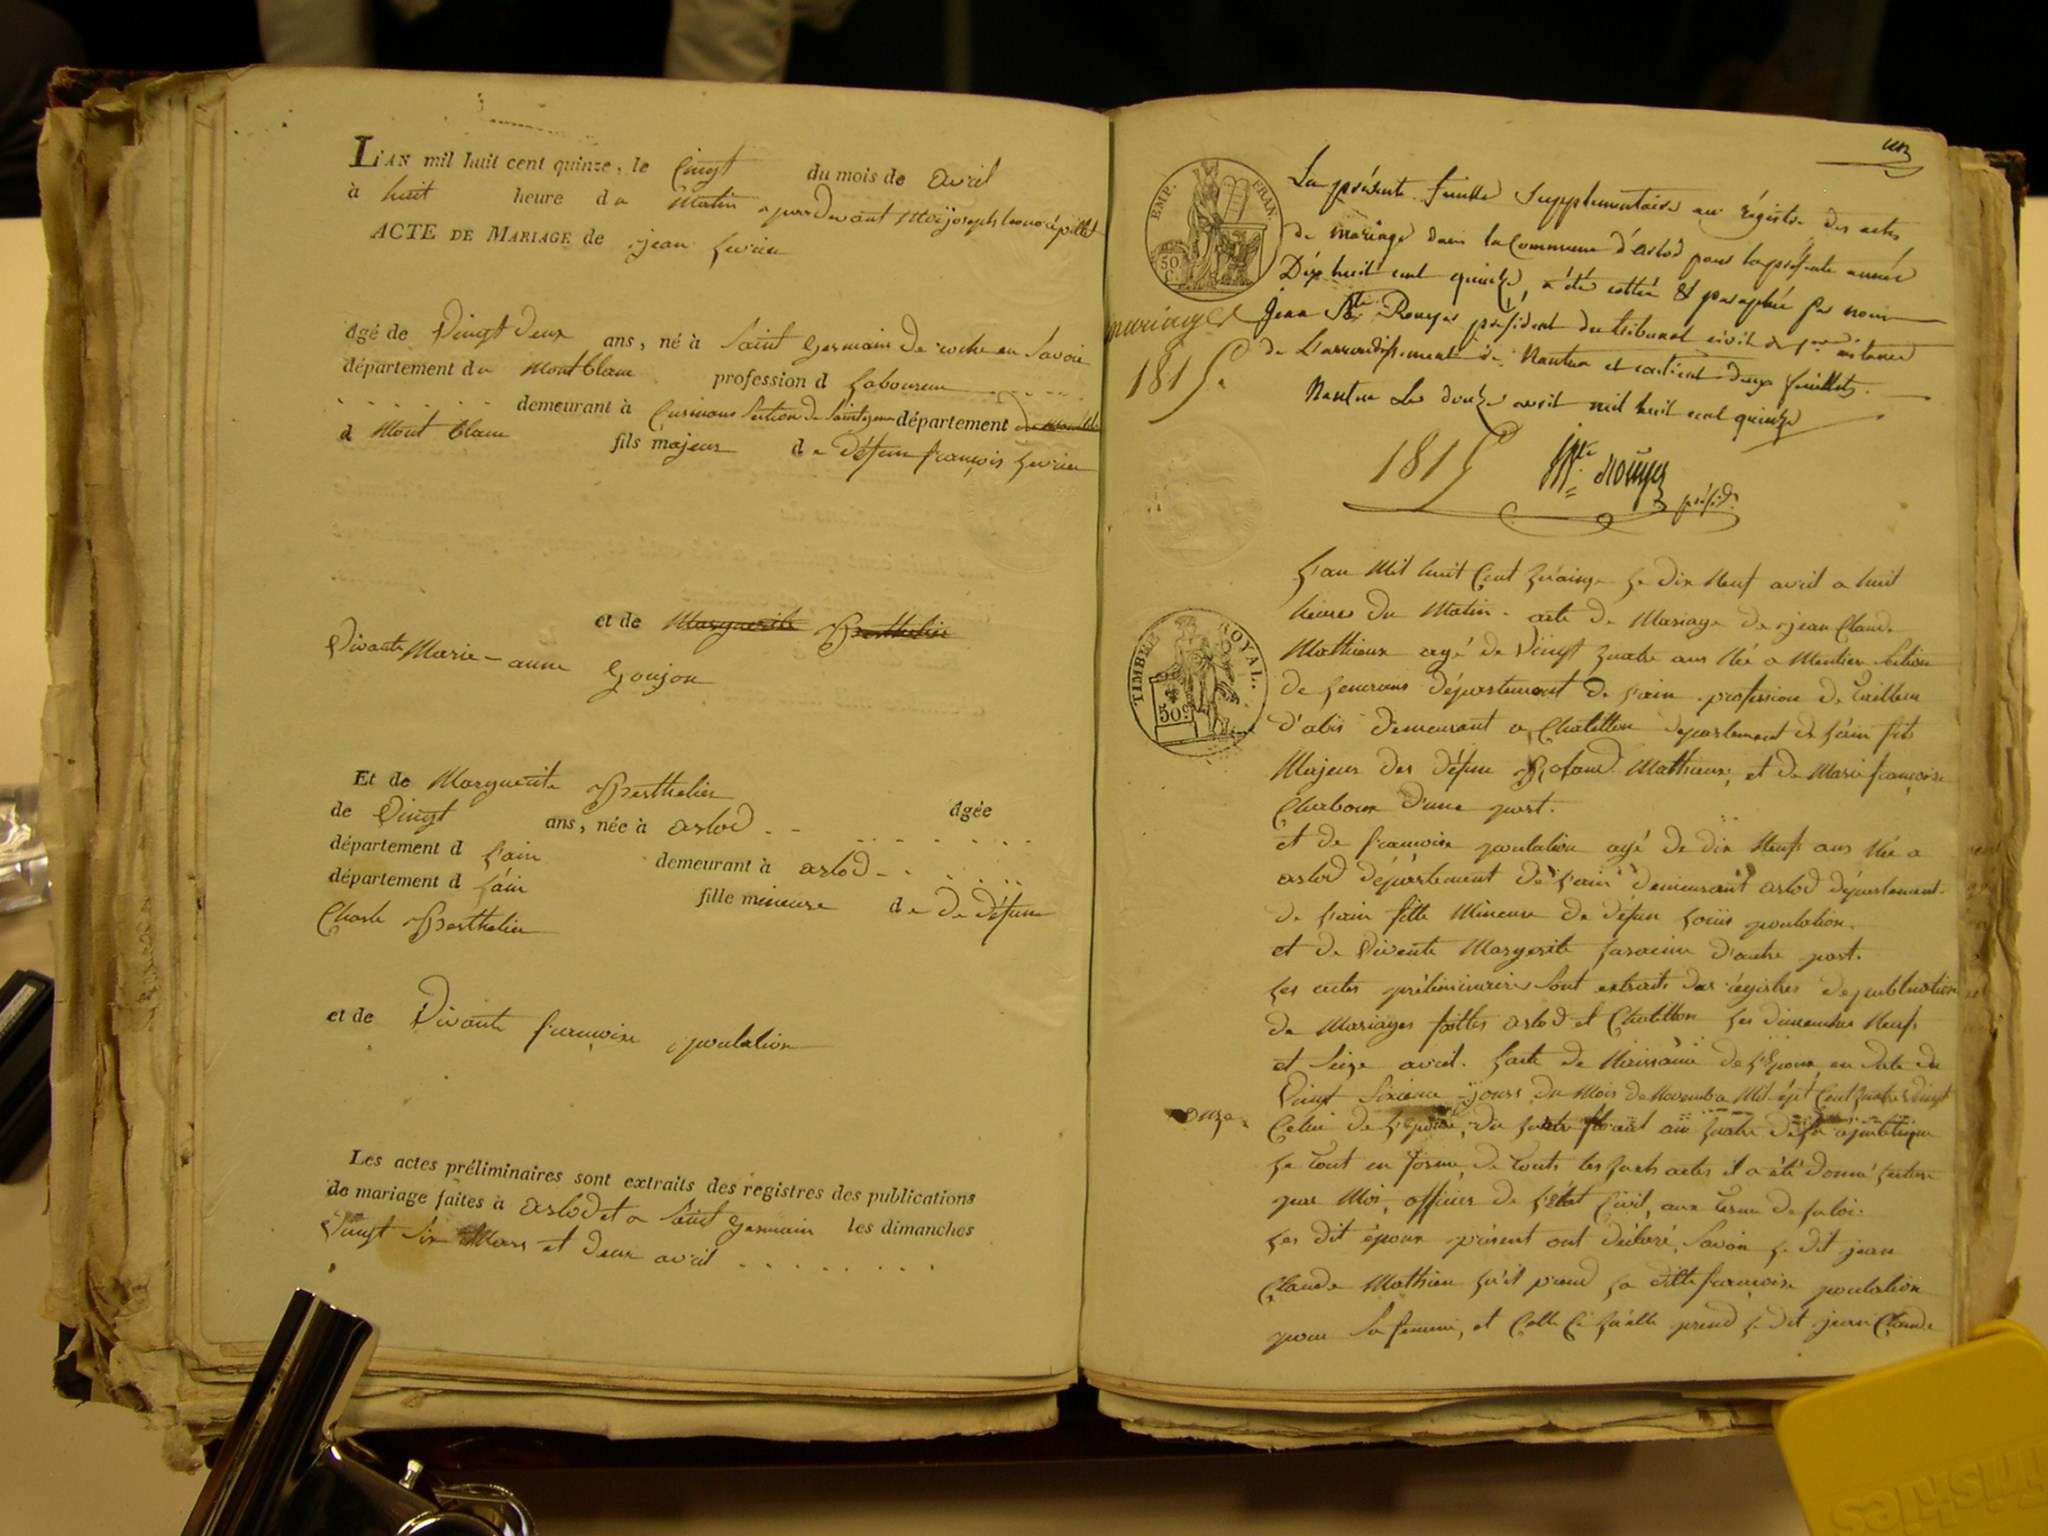 L'AN mil huit cent quinze, le Vingt du mois de avril
à huit heure du Matin pardevant Moi joseph honoré pillet
ACTE DE MARIAGE de jean Levrier
Agé de Vingt deux ans, né à Saint Germain De roche en Savoie
département du Mont blanc profession d Laboureur
demeurant à Section de Saint germ département
d Mont blanc fils majeur de Défun françois Levrier
et de Marguerite Berthelier
Vivante Marie-anne Goujon
Et de Marguerite Berthelier
de Vingt ans, née à arlod agée
département d L'ain demeurant à arlod
département d L'ain fille mineure de De défun
Charle Berthelier
et de Vivante francoise poulation
Les actes préliminaires sont extraits des registres des publications
de mariage faites à arlod et a Saint Germain les dimanches
Vingt Six Mars et deux avril
EMP. FRAN.
50 C.
La présente feuille Supplementaire au régistre des actes
de mariage dans la Commune d'arlod pour la présente année
Dix huit cent quinze, a été cottée & paraphée par nous
mariages Jean Bte Rouyer président du tribunal civil de 1ere instance
de L'arrondissement de Nantua et contient deux feuillets.
1815.
Nantua Le douze avril mil huit cent quinze
1815 Bte Rouyer présid.
TIMBRE ROYAL.
50 c
L'an Mil huit Cent quainze Le Dix Neuf avril a huit
heures du Matin. acte De Mariage De jean Claude
Mathieux agé de Vingt quatre ans Né a Mentier Section
de Lancrans département de L'ain profession De Tailleur
d'abis Demeurant a Chatillon departement de L'ain fils
Majeur des défun Rofand Mathieux, et de Marie françoise
Charboux D'une part.
et de francoise poulation agé de dix Neuf ans Né a
arlod département De L'ain Demeurant arlod département
de L'ain fille Mineure De défun Loüis poulation.
et De Vivente Margerite Saracine D'autre part.
Les actes préliminaires Sont extraits des régistres de publication
de Mariages faittes arlod et Chatillon Les dimenche Neuf
et Seize avril. L'acte de Naissance de L'Epoux en date du
Vingt Sixieme jours du Mois de Novembre Mil Sept Cent quatre Vingt
onze. Celui de L'epouse, du quatre floreal an quatre de la république
Le tout en forme, De touts Les quels actes il a été donné Lecture
par Moi, officier de L'état Civil, aux terme de La loi.
Les dit époux présent ont déclaré, Savoir Le dit jean
Claude Mathieu qu'il prend La ditte francoise poulation
pour Sa femme, et Celle Ci qu'elle prend Le dit jean Claude